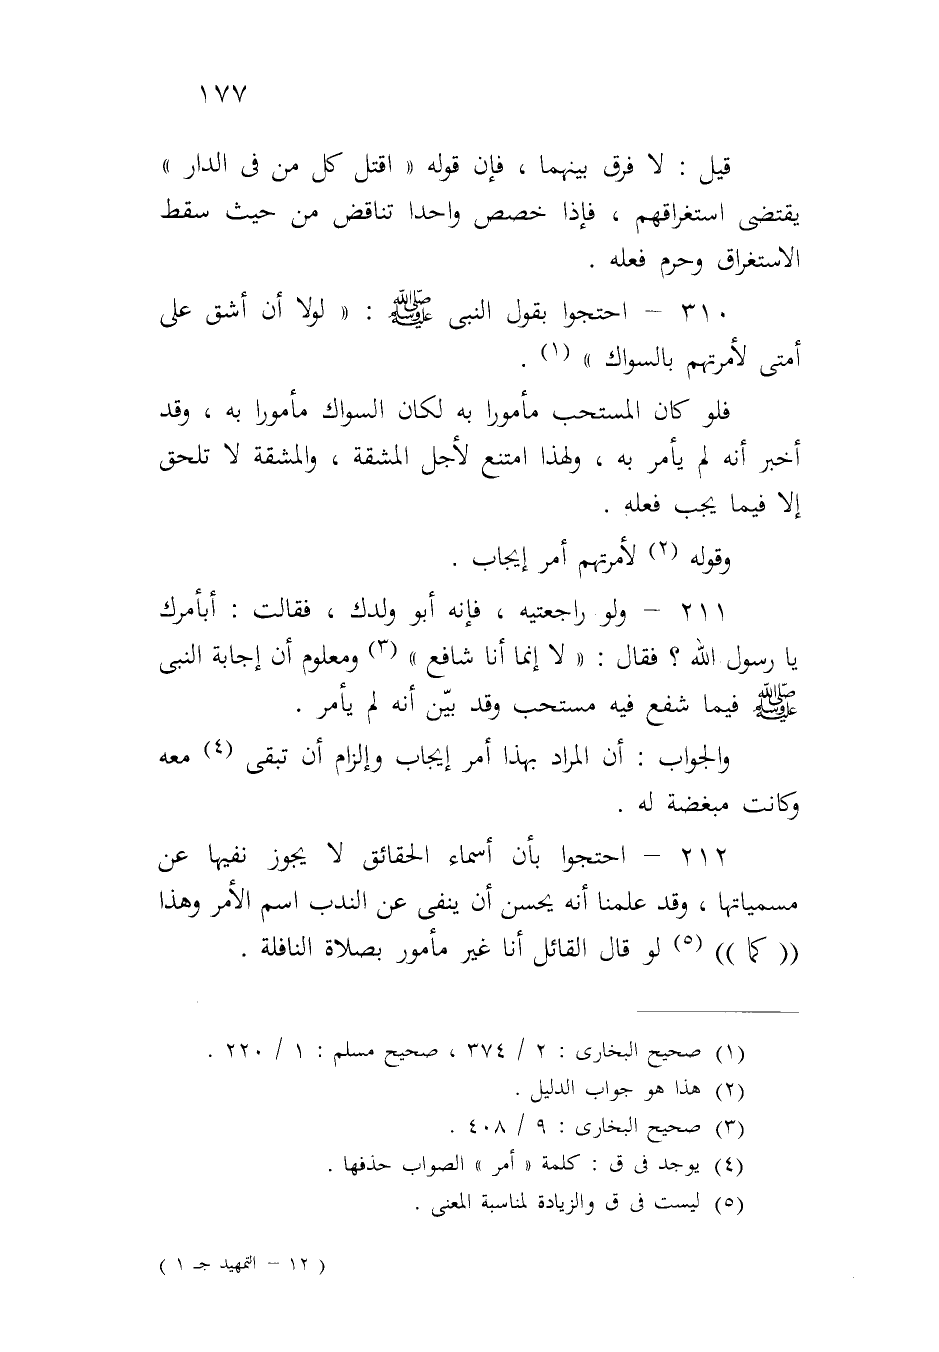 ١٧٧
قيل : لا فرق بينهما ، فإن قوله « اقتل كل من فى الدار »
يقتضى استغراقهم ، فإذا خصص واحدا تناقض من حيث سقط
الاستغراق وحرم فعله .
٣١٠ – احتجوا بقول النبى ﷺ : « لولا أن أشق على
أمتى لأمرتهم بالسواك » (١) .
فلو كان المستحب مأمورا به لكان السواك مأمورا به ، وقد
أخبر أنه لم يأمر به ، ولهذا امتنع لأجل المشقة ، والمشقة لا تلحق
إلا فيما يجب فعله .
وقوله (٢) لأمرتهم أمر إيجاب .
٢١١ – ولو راجعتيه ، فإنه أبو ولدك ، فقالت : أبأمرك
يا رسول الله ؟ فقال : « لا إنما أنا شافع » (٣) ومعلوم أن إجابة النبى
ﷺ فيما شفع فيه مستحب وقد بيّن أنه لم يأمر .
والجواب : أن المراد بهذا أمر إيجاب وإلزام أن تبقى (٤) معه
وكانت مبغضة له .
٢١٢ – احتجوا بأن أسماء الحقائق لا يجوز نفيها عن
مسمياتها ، وقد علمنا أنه يحسن أن ينفى عن الندب اسم الأمر وهذا
(( كما )) (٥) لو قال القائل أنا غير مأمور بصلاة النافلة .
(١) صحيح البخارى : ٢ / ٣٧٤ ، صحيح مسلم : ١ / ٢٢٠ .
(٢) هذا هو جواب الدليل .
(٣) صحيح البخارى : ٩ / ٤٠٨ .
(٤) يوجد فى ق : كلمة « أمر » الصواب حذفها .
(٥) ليست فى ق والزيادة لمناسبة المعنى .
( ١٢ – التمهيد جـ ١ )